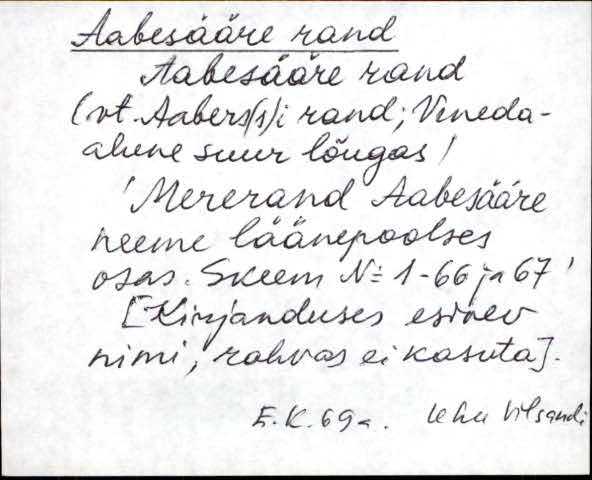 Aabesääre rand
Aabesääre rand
(vt. Aabers(s)i rand; Veneda-
alune suur lõugas!
'Mererand Aabesääre
neeme läänepoolses
osas. Skeem No 1-66 ja 67'
[Kirjanduses esinev
nimi, rahvas ei kasuta].
E.K. 69a. Vilsandi